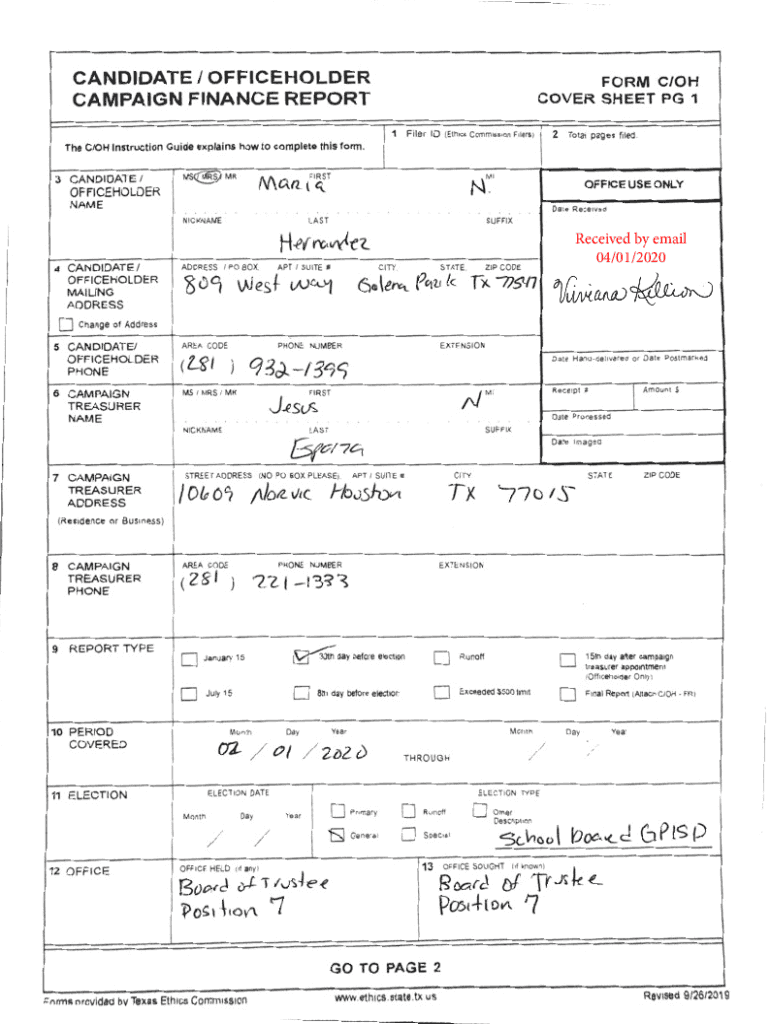 CANDIDATE / OFFICEHOLDER
CAMPAIGN FINANCE REPORT
FORM C/OH
COVER SHEET PG 1
The C/OH Instruction Guide explains how to complete this form.
1 Filer ID (Ethics Commission Filers)
2 Total pages filed
3 CANDIDATE / OFFICEHOLDER NAME
MS / MRS / MR FIRST MI
Maria N.
NICKNAME LAST SUFFIX
Hernandez
OFFICE USE ONLY
Date Received
Received by email
04/01/2020
Viviana Killion
4 CANDIDATE / OFFICEHOLDER MAILING ADDRESS
Change of Address
ADDRESS / PO BOX APT / SUITE # CITY STATE ZIP CODE
809 West way Galena Park TX 77547
5 CANDIDATE/ OFFICEHOLDER PHONE
AREA CODE PHONE NUMBER EXTENSION
(281) 932-1399
Date Hand-delivered or Date Postmarked
6 CAMPAIGN TREASURER NAME
MS / MRS / MR FIRST MI
Jesus N
NICKNAME LAST SUFFIX
Esparza
Receipt # Amount $
Date Processed
Date Imaged
7 CAMPAIGN TREASURER ADDRESS
(Residence or Business)
STREET ADDRESS (NO PO BOX PLEASE) APT / SUITE # CITY STATE ZIP CODE
10609 Norvic Houston TX 77015
8 CAMPAIGN TREASURER PHONE
AREA CODE PHONE NUMBER EXTENSION
(281) 221-1333
9 REPORT TYPE
January 15 30th day before election Runoff 15th day after campaign treasurer appointment (Officeholder Only)
July 15 8th day before election Exceeded $500 limit Final Report (Attach C/OH - FR)
10 PERIOD COVERED
Month Day Year Month Day Year
02 / 01 / 2020 THROUGH / /
11 ELECTION
ELECTION DATE ELECTION TYPE
Month Day Year
/ /
Primary Runoff Other Description
General Special School board GPISD
12 OFFICE
OFFICE HELD (if any)
Board of Trustee
Position 7
13 OFFICE SOUGHT (if known)
Board of Trustee
Position 7
GO TO PAGE 2
Forms provided by Texas Ethics Commission www.ethics.state.tx.us Revised 9/26/2019